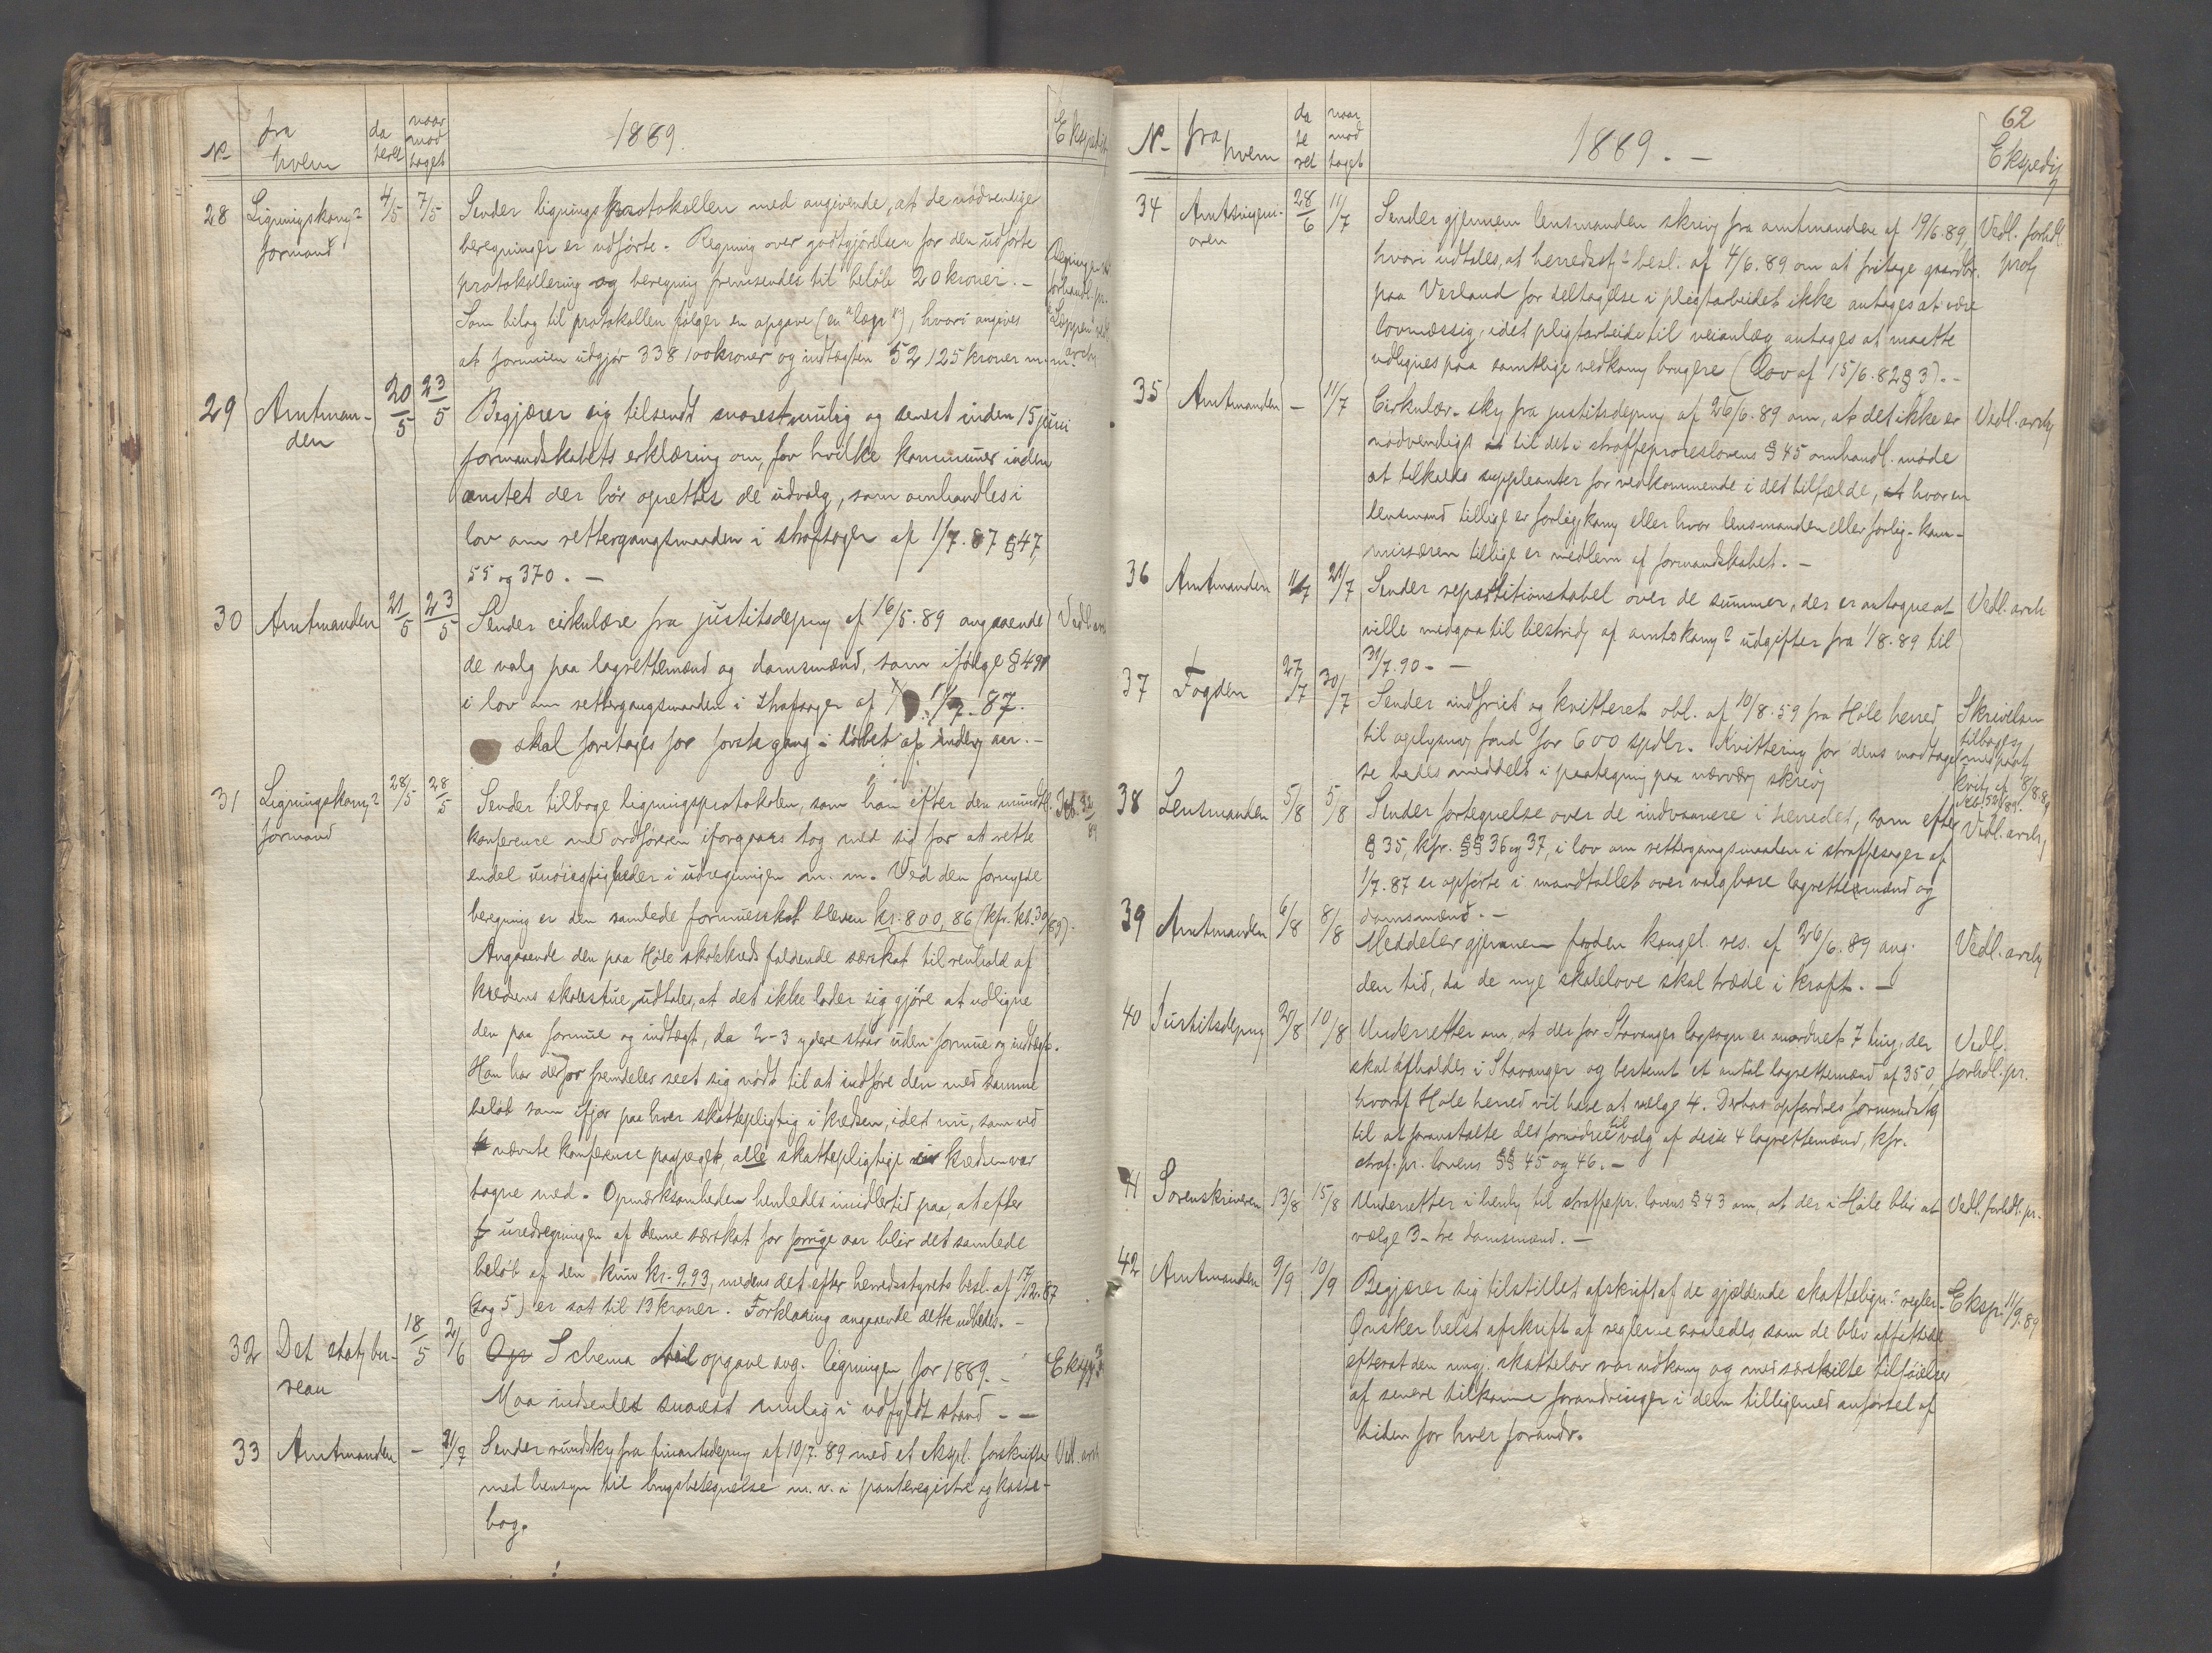 1889.
No fra hvem da teret naar mod taget Ekspedit
28 Ligningskom.s formand 4/5 7/5 Sender ligningsprotokollen med angivende, at de nödvendige
beregninger er udförte. Regning over godtgjörelsen for den udförte
protokollering og beregning fremsendes til belöb 20 kroner. -
Som bilag til protokollen fölger en opgave (en "læg"), hvori angives
at formuen udgjör 338 100 kroner og indtægten 52 125 kroner m. m.
Regningen
forhandl. pr.
Lappen vedl.
arch
29 Amtmanden 20/5 23/5 Begjærer sig tilsendt snarest mulig og senest inden 15 juni
formandskabets erklæring om, for hvilke kommuner inden
amtet der bör oprettes de udvalg, som omhandles i
lov om rettergangsmaaden i strafsager af 1/7. 87 § 47,
55 og 370. -
30 Amtmanden 21/5 23/5 Sender cirkulære fra justitsdepm af 16/5. 89 angaaende Vedl. arc
de valg paa lagrettemænd og domsmænd, som ifölge § 499
i lov om rettergangsmaaden i strafsager af 1/7. 87.
skal foretages for förste gang i löbet af inderv. aar. -
31 Ligningskom.s formand 28/5 28/5 Sender tilbage ligningsprotokolen, som han efter den mundtl.
konference med ordföreren iforgaars tog med sig for at rette
endel unöiagtigheder i udregningen m. m. Ved den fornyede
beregning er den samlede formuesskat bleven kr. 800,86 (kfr. kb. 30/89).
Angaaende den paa Höle skolekreds faldende særskat til renhold af
kredsens skolestue, udtales, at det ikke lader sig gjöre at udligne
den paa formue og indtægt, da 2-3 ydere staar uden formue og indtægt.
Han har derfor fremdeles seet sig nödt til at indföre den med samme
belöb som ifjor paa hver skattepligtig i kredsen, idet nu, som ved
nævnte konference paapeget, alle skattepligtige i kredsen var
tagne med. Opmærksomheden henledes imidlertid paa, at efter
uredregningen af denne særskat for forrige aar blir det samlede
belöb af den kun kr. 9.93, medens det efter herredsstyrets besl. af 17/2. 87
(sag 5) er sat til 13 kroner. Forklaring angaaende dette udbedes. -
32 Det statist. bureau 18/5 2/6 Schema til opgave ang. ligningen for 1889. - Eksp.
Maa indsendes snarest mulig i udfyldt stand - -
33 Amtmanden - 21/7 Sender rundskr. fra finantsdepm af 10/7. 89 med et ekspl. forskrifter Vedl. arch
med hensyn til brugsbetegnelse m. v. i panteregistre og kasse-
bog.
62
1889. -
No fra hvem da te ret naar mod taget Ekspedit
34 Amtsingeniören 28/6 11/7 Sender gjennem lensmanden skriv. fra amtmanden af 19/6. 89, Vedl. forhdl. prot
hvori udtales, at herredsst.s besl. af 4/6. 89 om at fritage gaardbr.
paa Verland for deltagelse i pligtarbeidet ikke antages at være
lovmæssig, idet pligtarbeide til veianlæg antages at maatte
udlignes paa samtlige vedkom. brugere (lov af 15/6. 82 § 3). -
35 Amtmanden - 11/7 Cirkulær-skr. fra justitsdepm af 26/6. 89 om, at det ikke er Vedl. arch
nödvendigt til det i straffeproceslovens § 45 omhandl. möde
at tilkalde suppleanter for vedkommende i det tilfælde, hvor en
lensmand tillige er forligskom. eller hvor lensmanden eller forlig.-kom-
missæren tillige er medlem af formandskabet. -
36 Amtmanden 11/7 21/7 Sender repartitionstabel over de summer, der er antagne at Vedl. arch
ville medgaa til bestrid. af amtskom.s udgifter fra 1/8. 89 til
31/7. 90 - -
37 Fogden 27/7 30/7 Sender indfriet og kvitteret obl. af 10/8. 59 fra Höle herred
til oplysn. fond for 600 spdlr. Kvittering for dens modtagel-
se bedes meddelt i paategning paa nærvær. skriv.
Skrivelsen
tilbages.
med paat.
kvit. af 8/8. 89
38 Lensmanden 5/8 5/8 Sender fortegnelse over de indvaanere i herredet, som efter Vedl. arch
§ 35, kfr. §§ 36 og 37, i lov om rettergangsmaaden i straffesager af
1/7. 87 er opförte i mandtallet over valgbare lagrettemænd og
domsmænd. -
39 Amtmanden 6/8 8/8 Meddeler gjennem fogden kongel. res. af 26/6. 89 ang. Vedl. arch
den tid, da de nye skolelove skal træde i kraft. -
40 Justitsdepm 2/8 10/8 Underretter om, at der for Stavanger lagsogn er anordnet 7 ting, der Vedl.
skal afholdes i Stavanger og bestemt et antal lagrettemænd af 350, forhdl. pr.
hvoraf Höle herred vil have at vælge 4. Derhos opfordres formandsk.
til at foranstalte det fornödne til valg af disse 4 lagrettemænd, kfr.
straf. pr. lovens §§ 45 og 46. -
41 Sorenskriveren 13/8 15/8 Underretter i henh. til straffepr. lovens § 43 om, at der i Höle blir at Vedl. forhdl. pr.
vælge 3 - tre domsmænd. -
42 Amtmanden 9/9 10/9 Begjærer sig tilstillet afskrift af de gjældende skatteligns regler. Eksp. 11/9. 89
Önsker helst afskrift af reglerne saaledes som de blev affattede
efterat den nugj. skattelov var udkom. og med særskilte tilföielser
af senere tilkomne forandringer i dem tilligemed anförsel af
tiden for hver forandr.